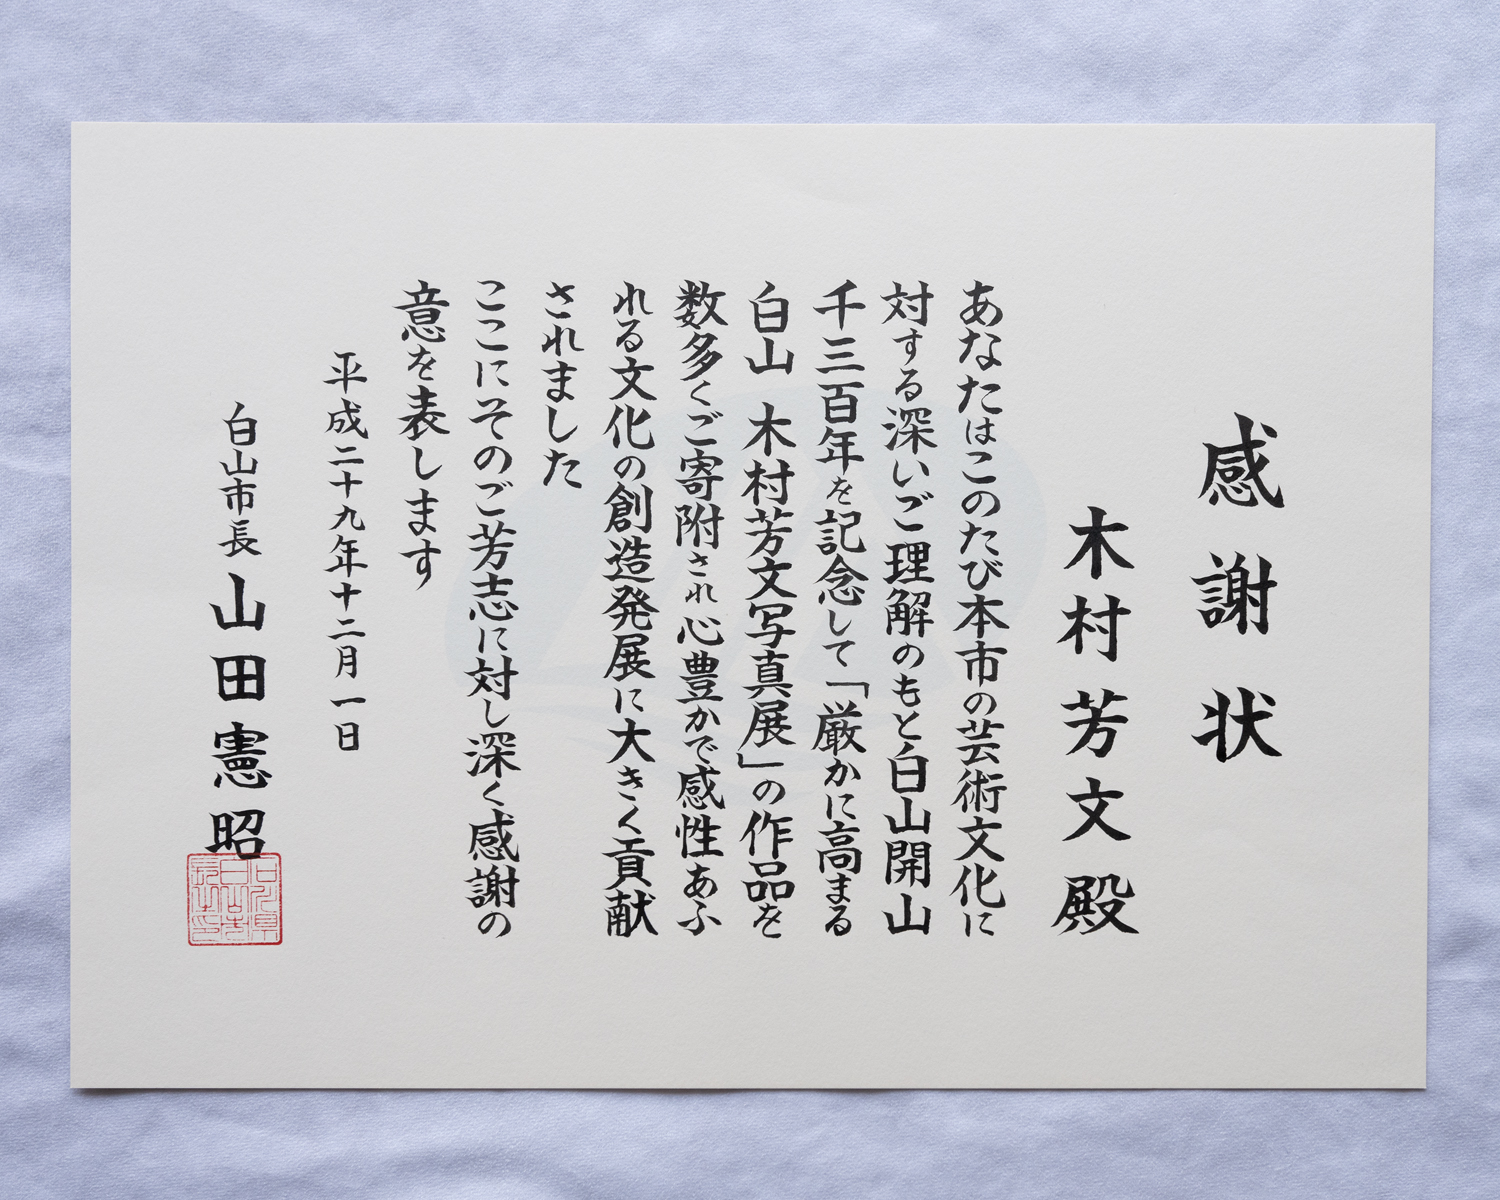 感謝状
木村芳文殿
あなたはこのたび本市の芸術文化に
対する深いご理解のもと白山開山
千三百年を記念して「厳かに高まる
白山 木村芳文写真展」の作品を
数多くご寄附され心豊かで感性あふ
れる文化の創造発展に大きく貢献
されました
ここにそのご芳志に対し深く感謝の
意を表します
平成二十九年十二月一日
白山市長 山田憲昭
石川県
白山市
長之印